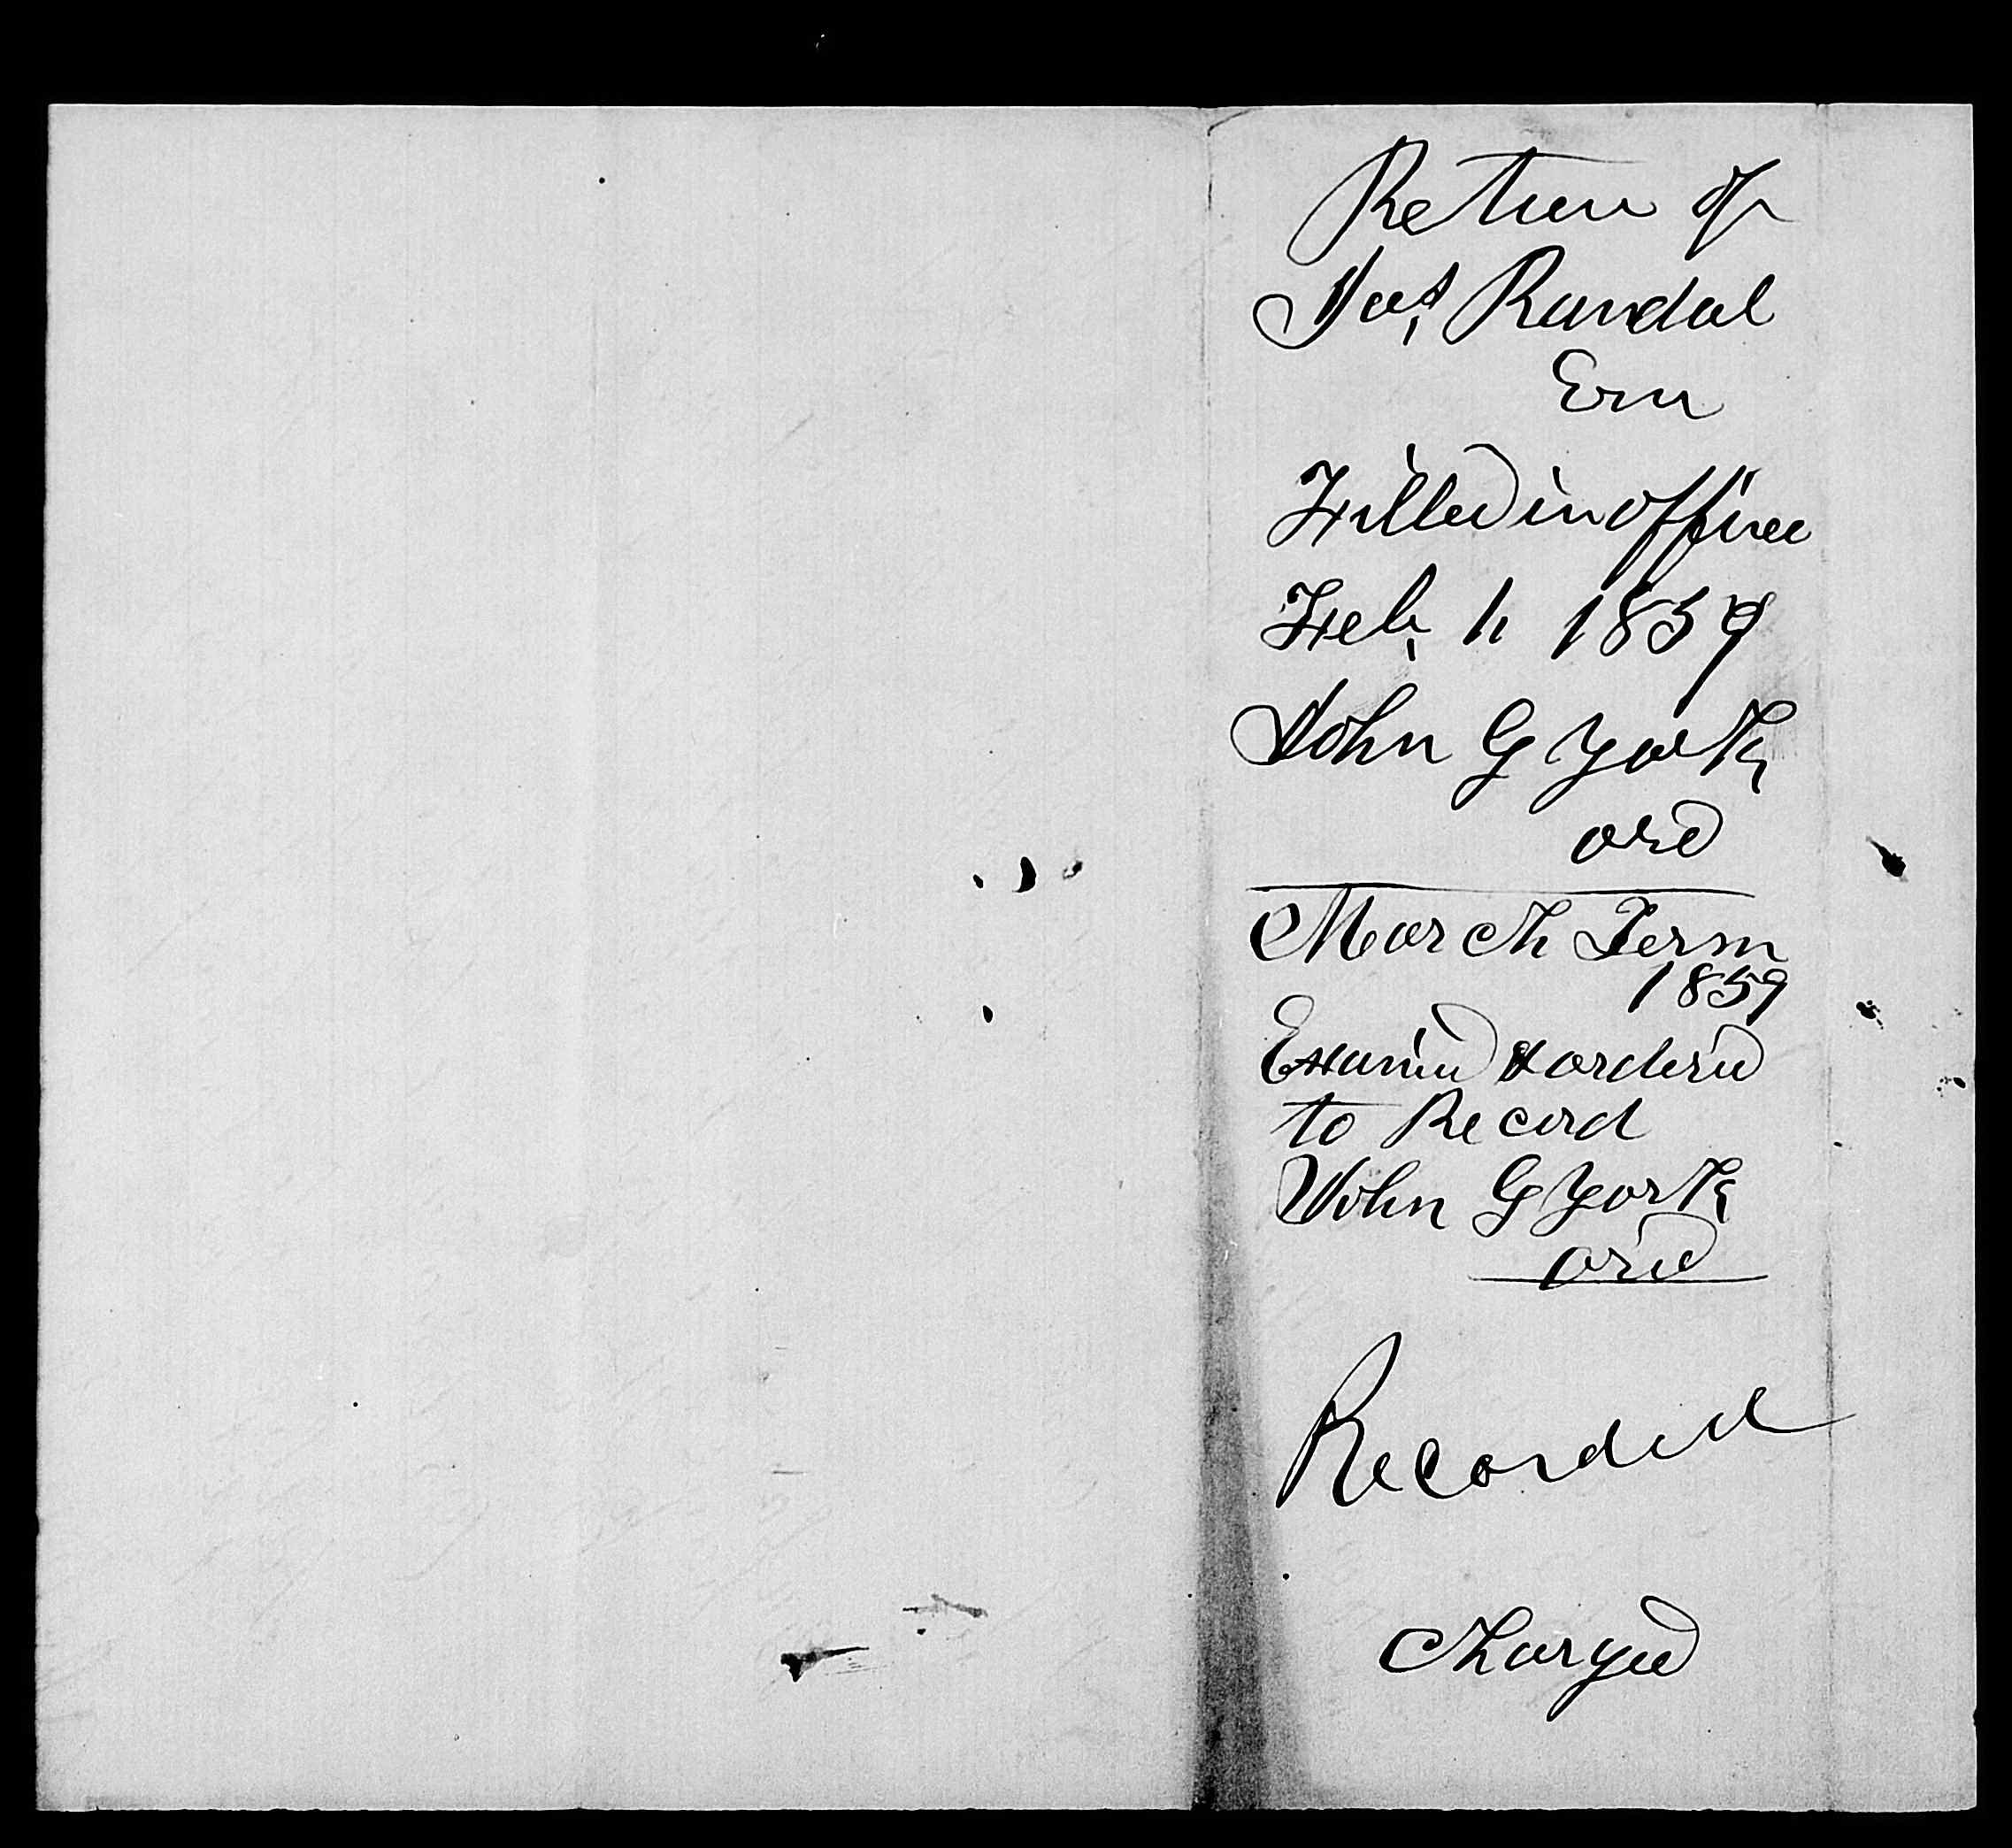 Return of
Jas. Randal
Exr
Filled in office
Feb. 1, 1859
John G York
ord
March Term
1859
Examined & ordered
to Record
John G York
ord
Recorded
Charged